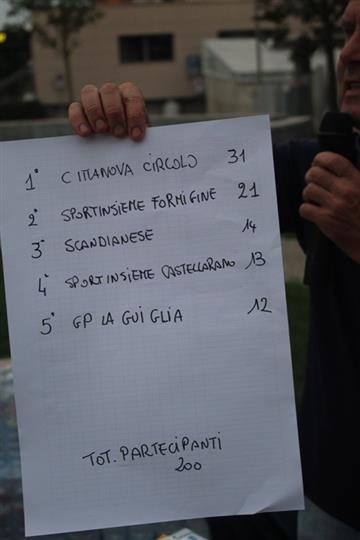 1° CITTANOVA CIRCOLO 31
2° SPORTINSIEME FORMIGINE 21
3° SCANDIANESE 14
4° SPORTINSIEME CASTELLARANO 13
5° GP LA GUIGLIA 12
TOT. PARTECIPANTI
200